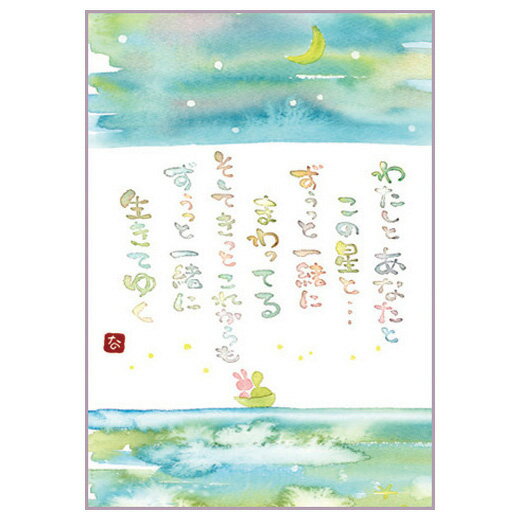 わたしとあなたと
この星と…
ずぅっと一緒に
まわってる
そしてきっとこれからも
ずぅっと一緒に
生きてゆく
な